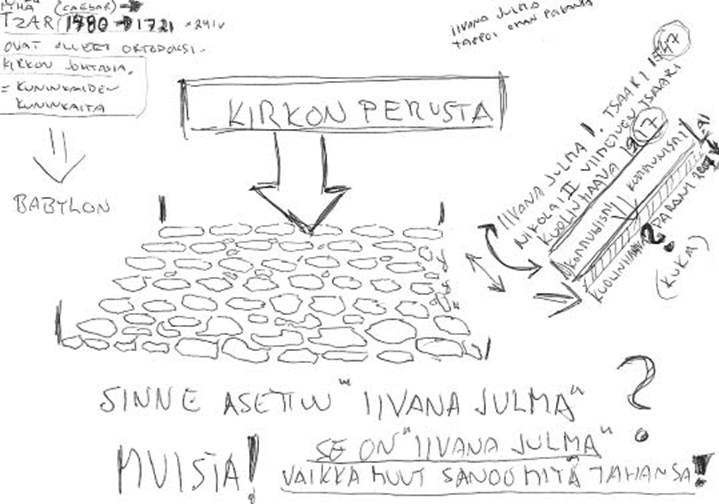 (CAESAR)
TZAR
OVAT OLLEET ORTODOKSI-
KIRKON JOHTAJIA.
= KUNINKAIDEN
KUNINKAITA
BABYLON
KIRKON PERUSTA
IIVANA JULMA
TAPPOI OMAN POIKANSA
IIVANA JULMA I. TSAARI 1547
NIKOLAI II VIIMEINEN TSAARI
KUOLINHAAVA 1917
KOMMUNISMI
KOMMUNISMI
PARANI
(KUKA)
?
SINNE ASETIN "IIVANA JULMA" ?
MUISTA! SE ON "IIVANA JULMA"
VAIKKA MUUT SANOO MITÄ TAHANSA!